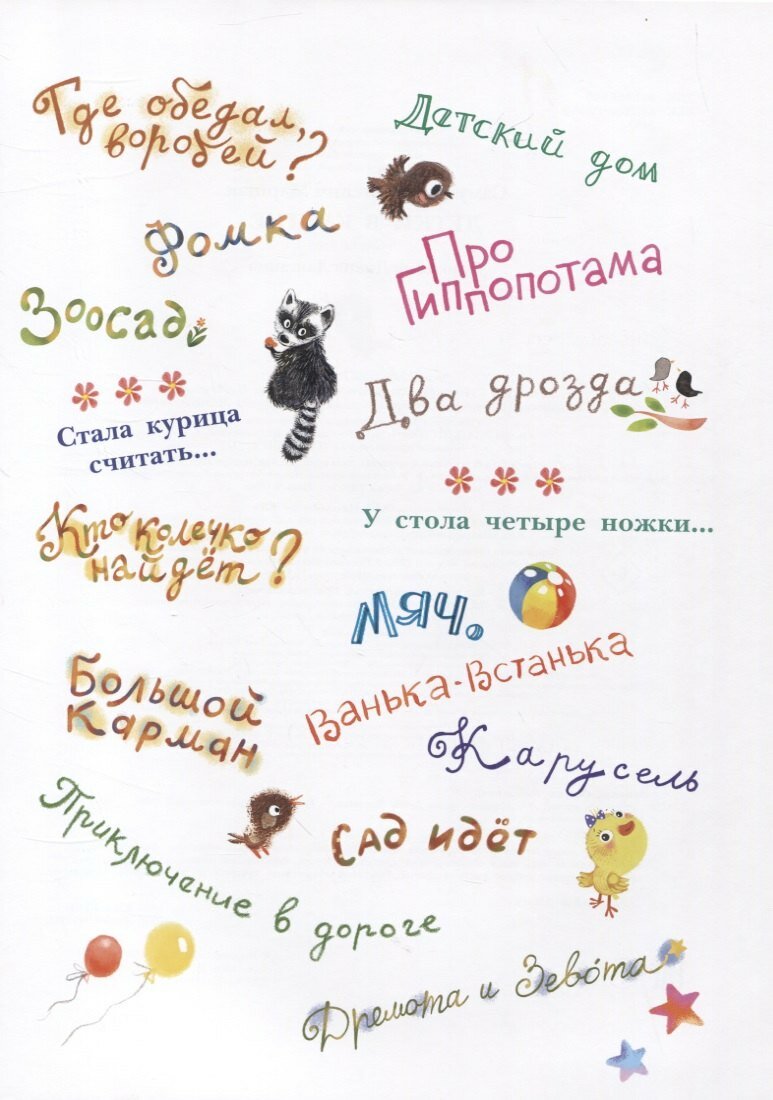 Где обедал,
воробей?
Детский дом
Фомка
Про
Гиппопотама
Зоосад
Два дрозда
* * *
Стала курица
считать...
* * *
У стола четыре ножки...
Кто колечко
найдёт?
Мяч.
Ванька-Встанька
Большой
карман
Карусель
Приключение в дороге
Сад идёт
Дремота и Зево́та